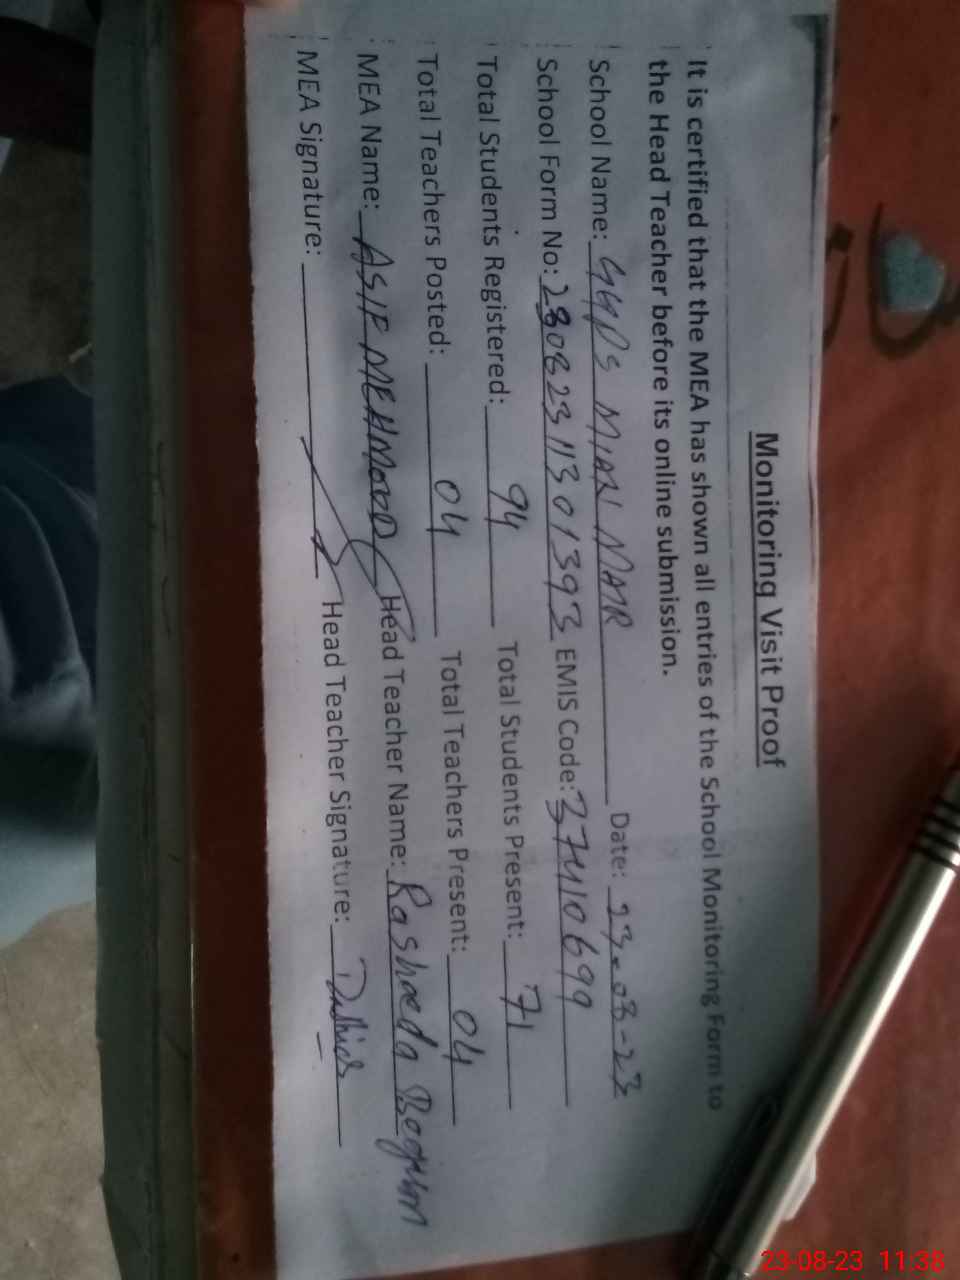 Monitoring Visit Proof
It is certified that the MEA has shown all entries of the School Monitoring Form to
the Head Teacher before its online submission.
School Name: GGPS MIAN MAIR Date: 23-08-23
School Form No: 23082311301393 EMIS Code: 37410699
Total Students Registered: 94 Total Students Present: 71
Total Teachers Posted: 04 Total Teachers Present: 04
MEA Name: ASIF MEHMOOD Head Teacher Name: Rasheeda Begum
MEA Signature: Head Teacher Signature:
23-08-23 11:38